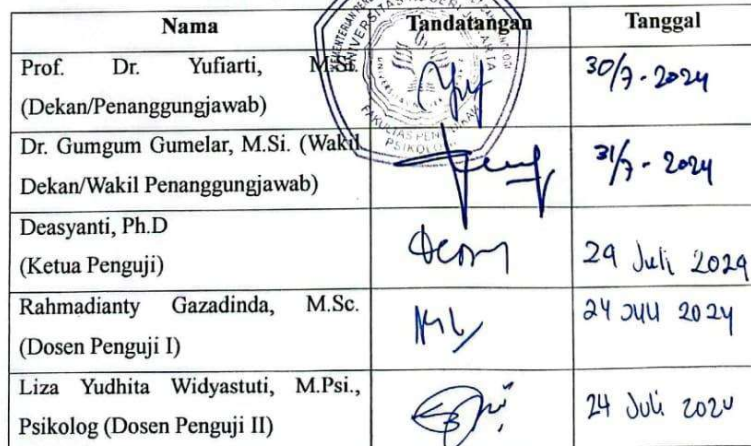 Nama Tandatangan Tanggal
Prof. Dr. Yufiarti, M.Si. 30/7 - 2024
(Dekan/Penanggungjawab)
Dr. Gumgum Gumelar, M.Si. (Wakil 31/7 - 2024
Dekan/Wakil Penanggungjawab)
Deasyanti, Ph.D
(Ketua Penguji) 29 Juli 2024
Rahmadianty Gazadinda, M.Sc. 24 Juli 2024
(Dosen Penguji I)
Liza Yudhita Widyastuti, M.Psi.,
Psikolog (Dosen Penguji II) 24 Juli 2024